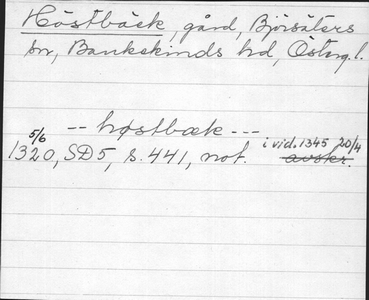 Höstbäck, gård, Björsäters
sn, Bankekinds hd, Östergl.
-- høstbæk ---
5/6 1320, SD5, s. 441, not. i vid. 1345 20/4
avskr.